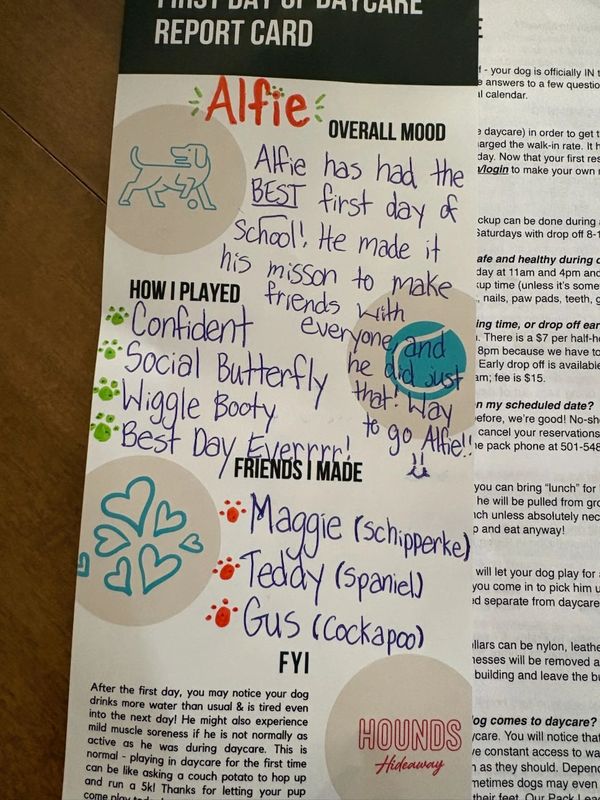 FIRST DAY OF DAYCARE
REPORT CARD
Alfie
OVERALL MOOD
Alfie has had the
BEST first day of
School! He made it
his misson to make
friends with
everyone, and
he did just
that! Way
to go Alfie!!
HOW I PLAYED
Confident
Social Butterfly
Wiggle Booty
Best Day Everrrr!
FRIENDS I MADE
Maggie (Schipperke)
Teddy (Spaniel)
Gus (Cockapoo)
FYI
After the first day, you may notice your dog
drinks more water than usual & is tired even
into the next day! He might also experience
mild muscle soreness if he is not normally as
active as he was during daycare. This is
normal - playing in daycare for the first time
can be like asking a couch potato to hop up
and run a 5k! Thanks for letting your pup
come play
HOUNDS
Hideaway
- your dog is officially IN
answers to a few
calendar.
daycare) in order to get
the walk-in rate. It
day. Now that your first
/login to make your own
can be done during
Saturdays with drop off 8-1
and healthy during
day at 11am and 4pm and
time (unless it's
nails, paw pads, teeth,
time, or drop off
There is a $7 per
8pm because we have to
Early drop off is available
fee is $15.
my scheduled date?
we're good!
cancel your reservations
pack phone at 501-548
you can bring "lunch" for
he will be pulled from
unless absolutely
and eat anyway!
will let your dog play for
you come in to pick him
separate from daycare
can be nylon,
will be removed
building and leave the
comes to daycare?
You will notice that
constant access to
as they should.
may even
their feet. Our Pack